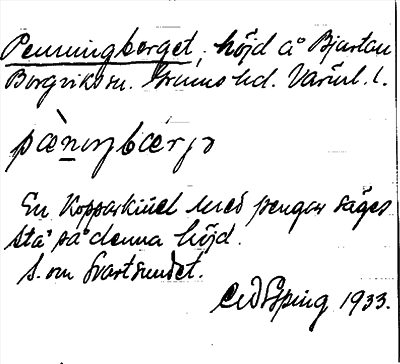 Penningberget, höjd å Bjurtan
Borgviks sn. Grums hd. Värml. l.
pæ̀nıŋbærjə
En Kopparkittel med pengar säges
stå på denna höjd.
S. om Svartsundet.
1933.